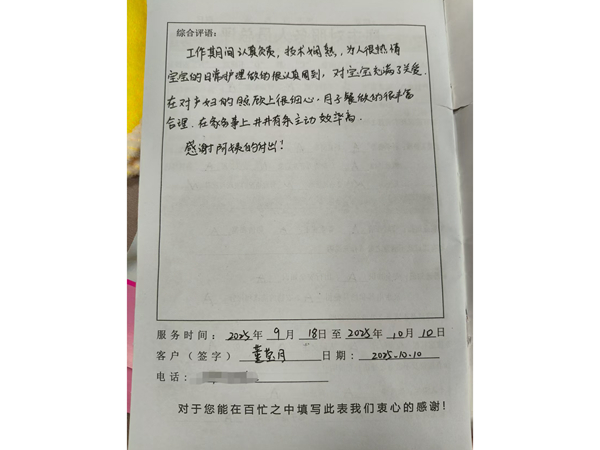 综合评语:
工作期间认真负责，技术娴熟，为人很热情
宝宝的日常护理做的很认真周到，对宝宝充满了关爱.
在对产妇的照顾上很细心，月子餐做的很丰富
合理.在家务事上井井有条主动效率高.
感谢阿姨的付出！
服务时间：2025年 9月 18日至2025年 10月 10日
客户（签字）董莹月 日期：2025.10.10
电话：
对于您能在百忙之中填写此表我们衷心的感谢！